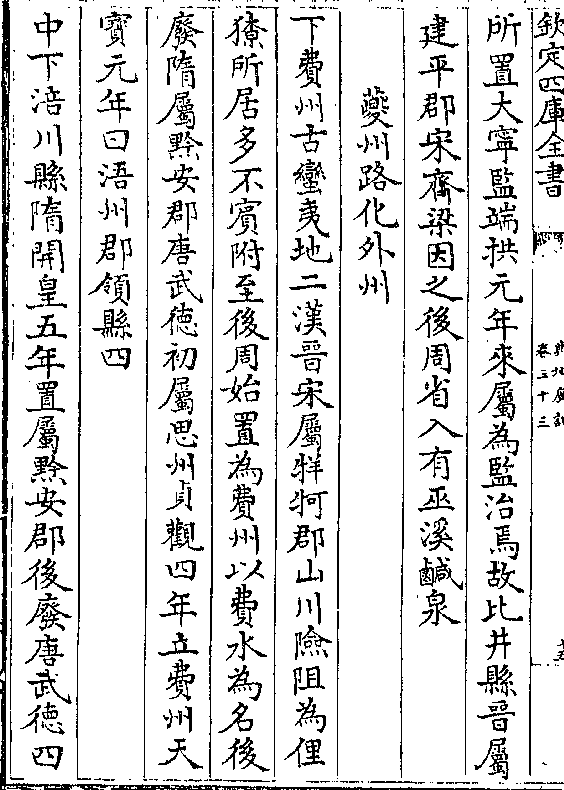 欽定四庫全書
輿地廣記
卷三十三
十五
所置大寧監端拱元年來屬為監治焉故比井縣晉屬
建平郡宋齊梁因之後周省入有巫溪鹹泉
夔州路化外州
下費州古蠻夷地二漢晉宋屬牂牁郡山川險阻為俚
獠所居多不賓附至後周始置為費州以費水為名後
廢隋屬黔安郡唐武德初屬思州貞觀四年立費州天
寶元年曰浯州郡領縣四
中下涪川縣隋開皇五年置屬黔安郡後廢唐武德四